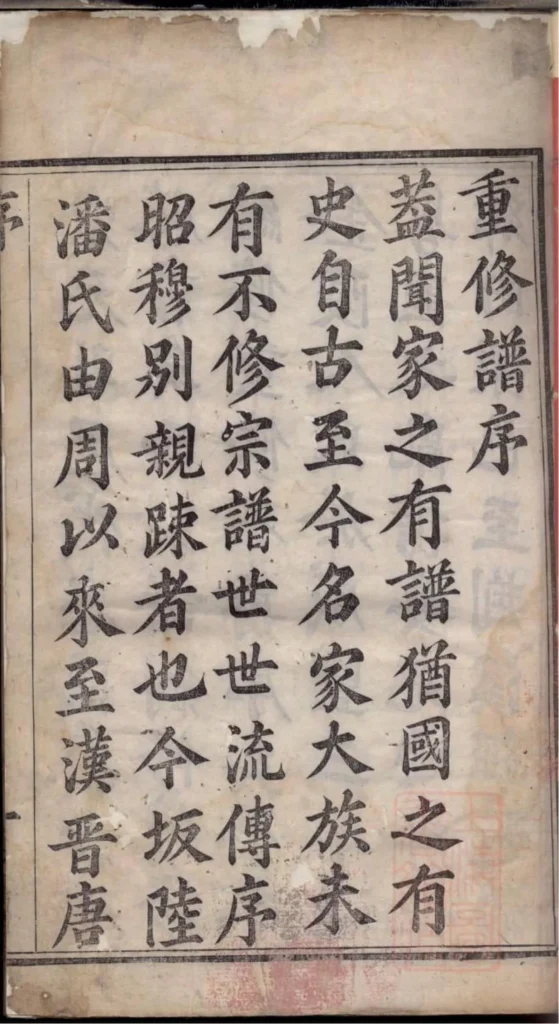 重修譜序
葢聞家之有譜猶國之有
史自古至今名家大族未
有不修宗譜世世流傳序
昭穆別親踈者也今坂陸
潘氏由周以來至漢晋唐
序
一